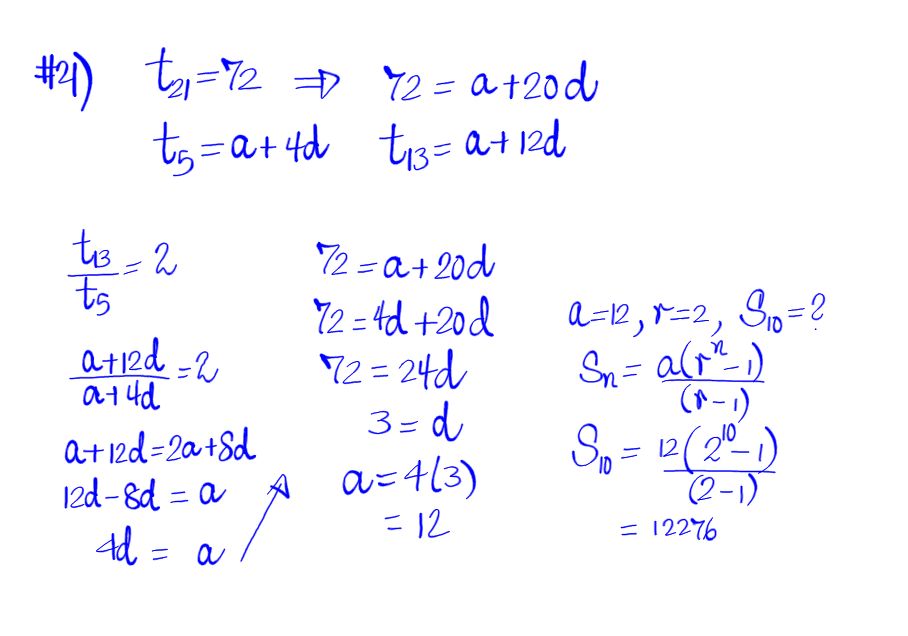 #21) t₂₁=72 ⇒ 72 = a+20d
t₅=a+4d t₁₃=a+12d
t₁₃/t₅ = 2
(a+12d)/(a+4d) = 2
a+12d=2a+8d
12d-8d = a
4d = a
72 = a+20d
72 = 4d+20d
72 = 24d
3 = d
a = 4(3)
= 12
a=12, r=2, S₁₀=?
Sₙ = a(rⁿ-1)/(r-1)
S₁₀ = 12(2¹⁰-1)/(2-1)
= 12276